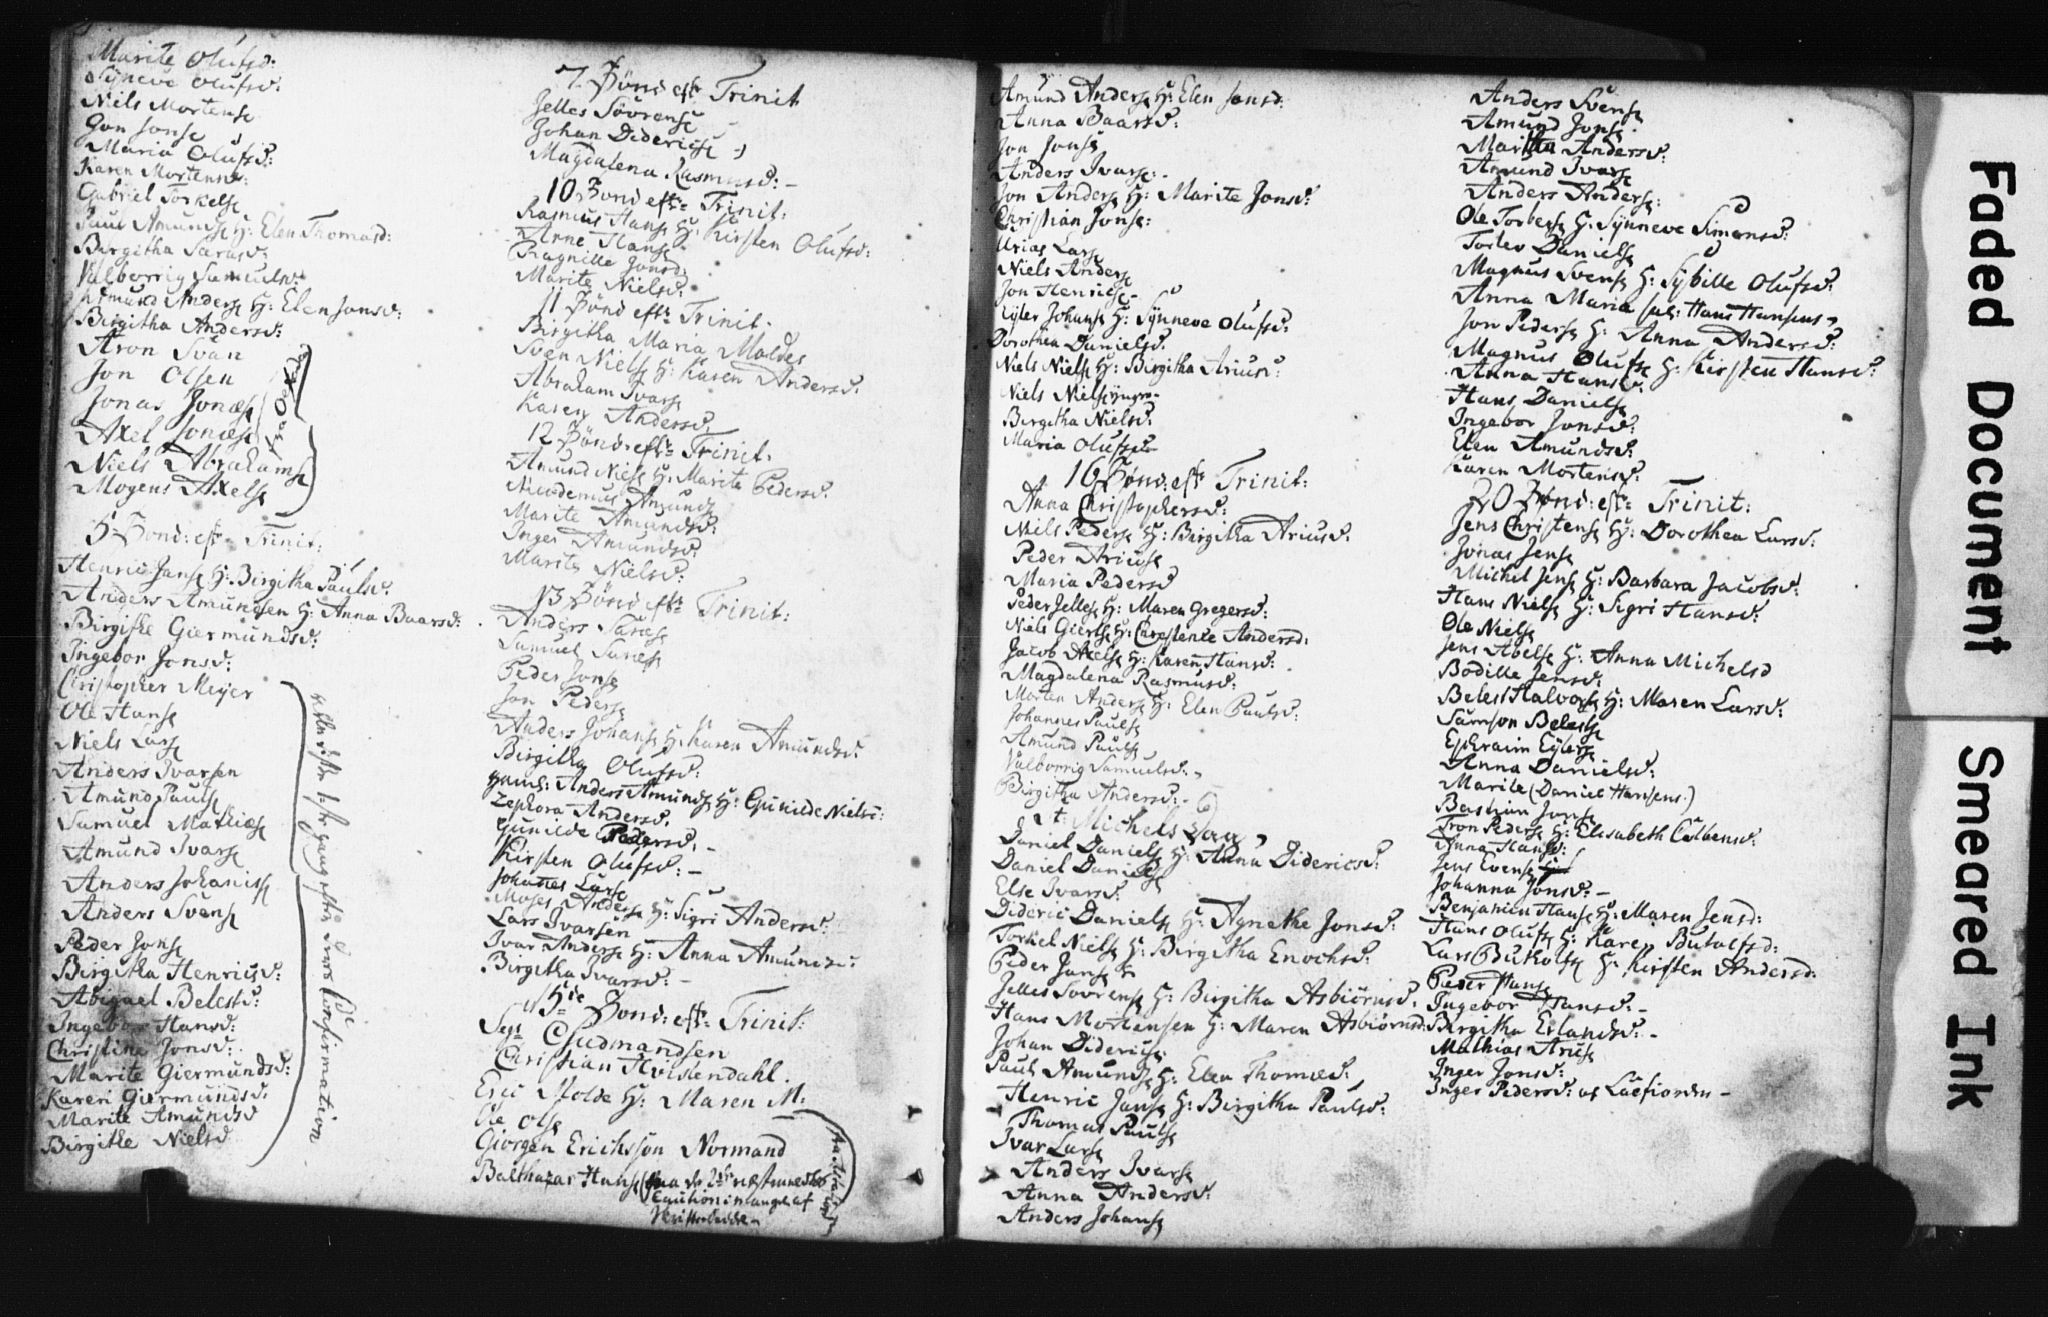 Marite Olufsd:
Synneve Olufsd:
Niels Mortense
Jon Jonse
Maria Olufsd:
Karen Mortensd:
Gabriel Torkelse
Paul Amundse H: Elen Thomasd:
Birgitha Sarasd:
Valborrig Samuelsd:
Amund Anderse H: Elen Jonsd:
Birgitha Andersd:
Aron Svan
Jon Olsen
Jonas Jonæse
Axel Jonæse
Niels Abrahamse
Mogens Axelse
5 Sönd: eft. Trinit:
Henric Janse H: Birgitha Paulsd.
Anders Amundsen H: Anna Baarsd:
Birgithe Giermundsd:
Ingebor Jonsd:
Christopher Meyer
Ole Hanse
Niels Larse
Anders Ivarsen
Amund Paulse
Samuel Mathiæse
Amund Ivarse
Anders Johanise
Anders Svense
Peder Jonse
Birgitha Henricsd:
Abigael Belestsd:
Ingebor Hansd:
Christine Jonsd:
Marite Giermundsd:
Karen Giermundsd.
Marite Amundsd
Birgithe Nielsd
gang efter deres Confirmation
7. Sönd eft. Trinit
Jelles Sövrense
Johan Diderichse
Magdalena Rasmusd: -
10 Sond eft. Trinit:
Rasmus Hanse H: Kirsten Olufsd:
Arne Hanse
Ragnille Jonsd
Marite Nielsd:
11 Sönd eft. Trinit.
Birgitha Maria Moldes
Sven Nielse H: Karen Andersd.
Abraham Ivarse
Karen Andersd.
12 Sönd: eft. Trinit.
Amund Nielse H: Marite Pedersd.
Nicodemus Amundse
Marite Amundsd:
Inger Amundsd.
Marite Nielsd:
13 Sönd eft. Trinit:
Anders Saræse
Samuel Saræse
Peder Jonse
Jon Pederse
Anders Johanse H. Karen Amundsd.
Birgitha Olufsd:
Anders Amundse H: Gunilde Nielsd:
Zephora Andersd.
Gunilde Pedersd. -
Kirsten Olufsd: -
Johanes Larse
Moses Anderse H: Sigri Andersd.
Lars Ivarsen
Ivar Anderse H: Anna Amundsd:
Birgitha Ivarsd: -
15de Sönd: eft. Trinit:
Sejr Gudmandsen
Christian Hvistendahl
Eric Molde H: Maren M:
Ole Olse
Giorgen Erichsson Normand
Balthazar Hanse
Amund Anderse H: Elen Jonsd:
Anna Baarsd:
Jon Jonse
Anders Ivarse. -
Jon Anderse H: Marite Jonsd:
Christian Jonse:
Urias Larse
Niels Anderse
Jon Henricse -
Eyler Johanse H: Synneve Olufsd:
Dorothea Danielsd.
Niels Nielse H: Birgitha Ariusd:
Niels Nielse yngre -
Birgitha Nielsd.
Maria Olufsd
16 Sönd: eft. Trinit:
Anna Christophersd:
Niels Pederse H: Birgitha Ariusd.
Peder Ariuse
Maria Pedersd
Peder Jellese H: Maren Gregersd:
Niels Giertse H: Chrestense Andersd:
Jacob Axelse H: Karen Hansd:
Magdalena Rasmusd:
Morten Anderse H: Elen Paulsd:
Johannes Paulse
Amund Paulse
Valborrig Samuelsd:
Birgitha Andersd: -
St: Michels Dag
Daniel Danielse H: Anna Didericsd:
Daniel Danielse
Else Ivarsd:
Dideric Danielse H: Agnethe Jonsd:
Torkel Nielse H: Birgitha Enochsd:
Peder Janse
Jelles Sovrense H: Birgitha Asbiörnsd.
Hans Mortensen H: Maren Asbiörnsd:
Johan Didericse.
Paul Amundse H: Elen Thomæsd:
Henric Janse H: Birgitha Paulsd:
Thomas Paulse
Ivar Larse
Anders Ivarse
Anna Andersd.
Anders Johanse
Anders Svense
Amund Jonse
Martha Andersd:
Amund Ivarse
Anders Anderse:
Ole Torbense H: Synneve Simonsd:
Torlev Danielse
Magnus Svense H: Sybille Olufsd:
Anna Maria sal: Hans Hansens
Jon Pederse H: Anna Andersd:
Magnus Olufse H: Kirsten Hansd:
Anna Hansd.
Hans Danielse
Ingebor Jonsd:
Elen Amundsd:
Karen Mortensd.
20 Sönd: eft. Trinit:
Jens Christense H: Dorothea Larsd:
Jonas Jense
Michel Jense H: Barbara Jacobsd:
Hans Nielse H: Sigri Hansd:
Ole Nielse
Jens Abelse H: Anna Michelsd
Bodille Jensd:
Belest Halvorse H: Maren Larsd:
Samson Belestse
Ephraim Eylerse
Anna Danielsd:
Marite (Daniel Hansens.)
Bastian Jonse
Tron Pederse H: Elisabeth Colbensd:
Anna Hansd:
Jens Evense
Johanna Jonsd: -
Benjamin Hanse H: Maren Jensd:
Hans Olufse H: Karen Butolfsd:
Lars Butholse H: Kirsten Andersd:
Peder Hanse
Ingebor Hansd: -
Birgitha Erlandsd: -
Mathias Aruse
Inger Jonsd:
Inger Pedersd: af Laefiorden -
Faded Document
Smeared Ink